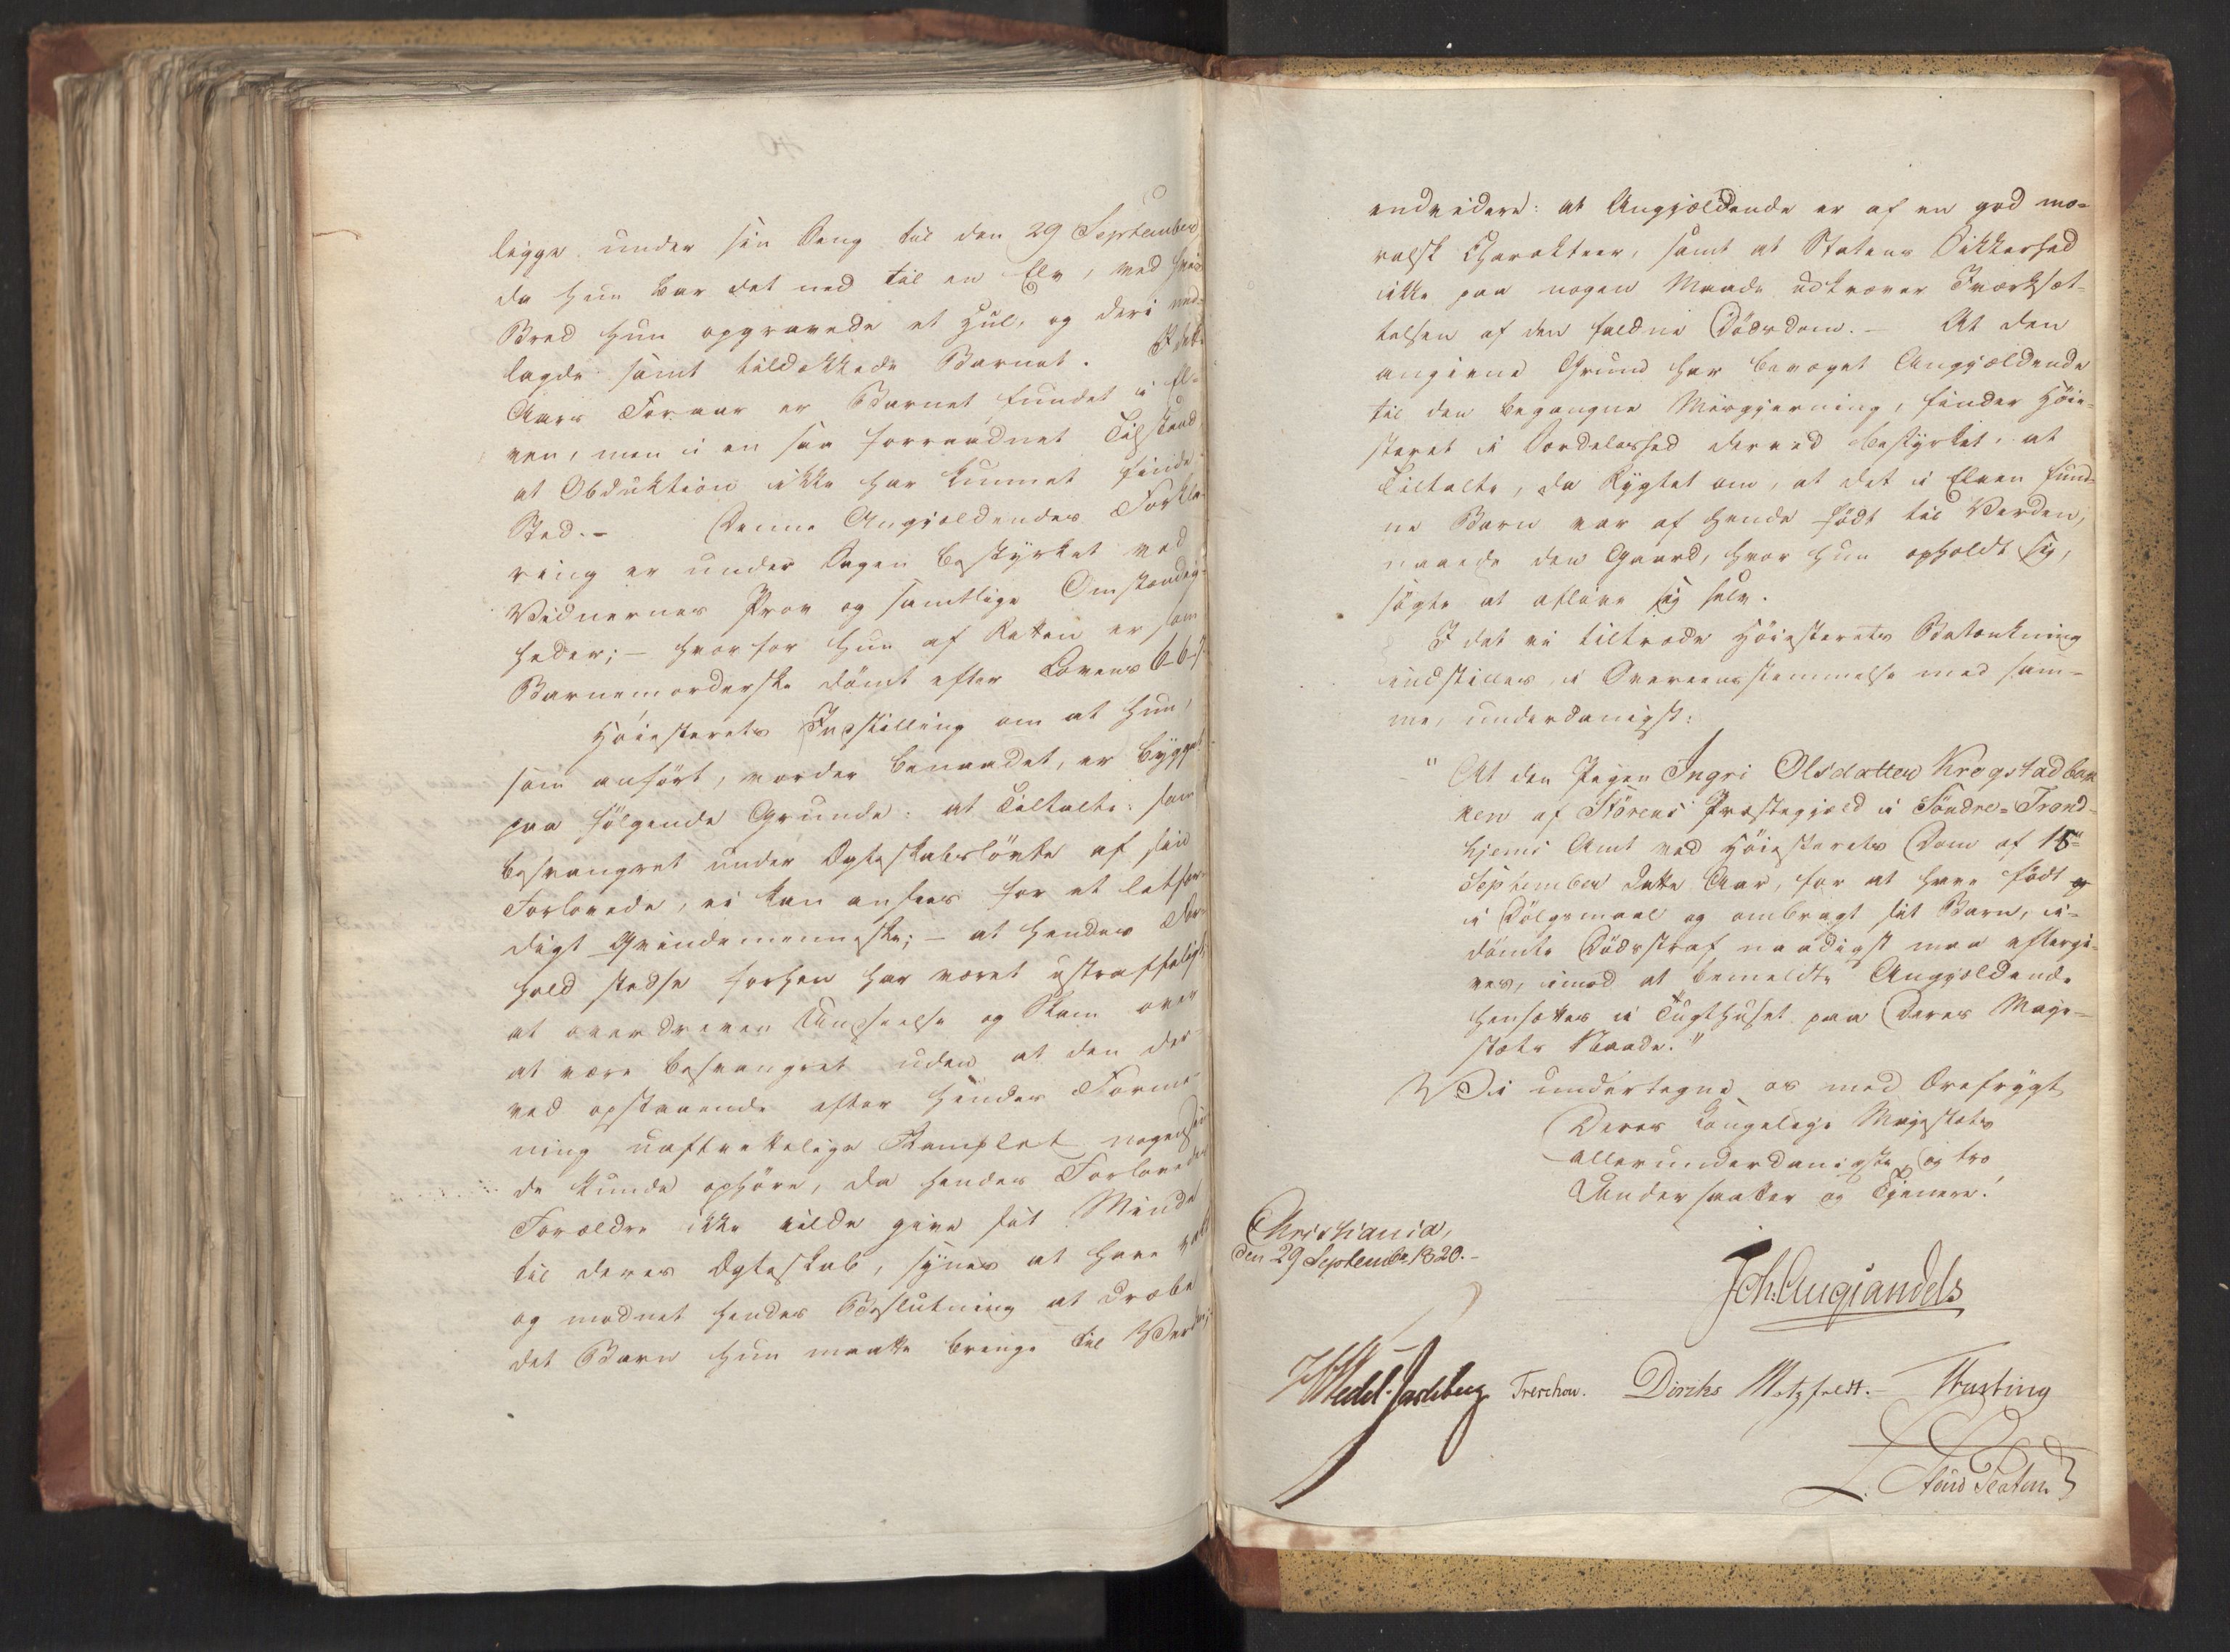 ligge under sin Seng til den 29 September
da hun bar det ned til en Elv, ved hvis
Bred hun opgravede et Hul, og deri ned-
lagde samt tildækkede Barnet. I dette
Aars Foraar er Barnet fundet i El-
ven, men i en saa forraadnet Tilstand
at Obduktion ikke har kunnet finde
Sted. – Denne Angjældendes Forkla-
ring er under Sagen bestyrket ved
Vidnernes Prov og samtlige Omstændig-
heder; – hvorfor hun af Retten er som
Barnemorderske dömt efter Lovens 6-6-7.
Höiesterets Indstilling om at hun,
som anfört, vorder benaadet, er bygget
paa fölgende Grunde: at Tiltalte: som
besvangret under Ægteskabslövte af sin
Forlovede, ei kan ansees for et letfær-
digt Qvindemenneske; – at hendes For-
hold stedse forhen har været ustraffeligt;
at overdreven Undseelse og Skam over
at være besvangret uden at den der-
ved opstaaende efter hendes Forme-
ning uaftvættelige Skamplet nogensin-
de kunde ophöre, da hendes Forlovedes
Forældre ikke vilde give sit Minde
til deres Ægteskab, synes at have vakt
og modnet hendes Beslutning at dræbe
det Barn hun maatte bringe til Verden;
endvidere: at Angjældende er af en god mo-
ralsk Charakteer, samt at Statens Sikkerhed
ikke paa nogen Maade udkræver Iværksæt-
telsen af den faldne Dödsdom. – At den
angivne Grund har bevæget Angjældende
til den begangne Misgjerning, finder Höie-
steret i Særdeleshed derved bestyrket, at
Tiltalte, da Rygtet om, at det i Elven fund-
ne Barn var af hende födt til Verden,
naaede den Gaard, hvor hun opholdt sig,
sögte at aflive sig selv.
I det vi tiltræde Höiesterets Betænkning
indstilles i Overeensstemmelse med sam-
me, underdanigst:
"At den Pigen Ingri Olsdatter Krogstadbak
ken af Störens Præstegjeld i Söndre-Trond-
hjems Amt ved Höiesterets Dom af 15de
September dette Aar, for at have födt
i Dölgsmaal og ombragt sit Barn, i-
dömte Dödsstraf naadigst maa eftergi-
ves, imod at bemeldte Angjældende
hensættes i Tugthuset paa Deres Maje-
stæts Naade."
Vi undertegne os med Ærefrygt
Deres Kongelige Majestæts
allerunderdanigste og tro
Undersaatter og Tjenere!
Christiania,
den 29 September 1820. –
Joh. Aug. Sandels
HWedel-Jarlsberg Treschow. Diriks Motzfeldt. Fasting